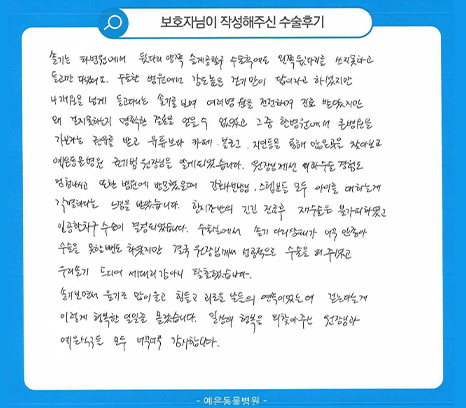 보호자님이 작성해주신 수술후기
슬기는 타병원에서 뒷다리 양쪽 슬개골탈구 수술후에도 왼쪽 뒷다리를 쓰지못하고
들고만 다녔어요. 수술한 병원에서는 강도높은 걷기만이 답이라고 하셨지만
4개월을 넘게 들고다니는 슬기를 보며 여러병원을 전전하며 진료 받았지만
왜 걷지못하는지 명확한 결론을 얻을수 없었고 그중 한병원에서 큰병원을
가보라는 권유를 받고 유튜브와 카페, 블로그, 지인등을 통해 많은곳을 찾아보고
예은동물병원 권기범 원장님을 알게되었습니다. 원장님께선 재수술 경험도
많으시고 또한 병원에 방문했을때 간호사선생님, 스텝분들 모두 아이를 대하는게
각별하다는 느낌을 받았습니다. 한시간반의 긴긴 진료후 재수술은 불가피하였고
인공활차구 수술이 결정되었습니다. 수술실에서 슬기 다리상태가 너무 안좋아
수술을 못할뻔도 하였지만 결국 원장님께서 성공적으로 수술을 해주셨고
우리슬기 드디어 세다리강아지 탈출했습니다.
슬기보면서 울기도 많이울고 힘들고 괴로운 날들의 연속이었는데 걷는다는게
이렇게 행복한 일인줄 몰랐습니다. 일상의 행복을 되찾아주신 원장님과
예은식구들 모두 너무너무 감사합니다.
- 예은동물병원 -